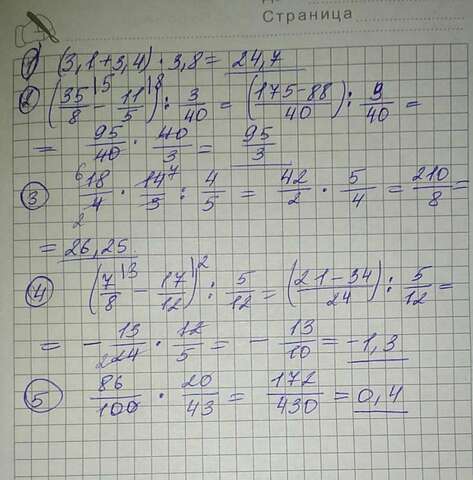 Страница
1 (3,1+3,4) · 3,8 = 24,7
2 (35/8 |5 - 11/5 |8) : 3/40 = (175-88/40) : 9/40 =
= 95/40 · 40/3 = 95/3
3 6 18/4 2 · 14 7/3 : 4/5 = 42/2 · 5/4 = 210/8 =
= 26,25.
4 (7/8 |3 - 17/12 |2) : 5/12 = (21-34/24) : 5/12 =
= - 13/2 24 · 12/5 = - 13/10 = -1,3
5 86/100 · 20/43 = 172/430 = 0,4